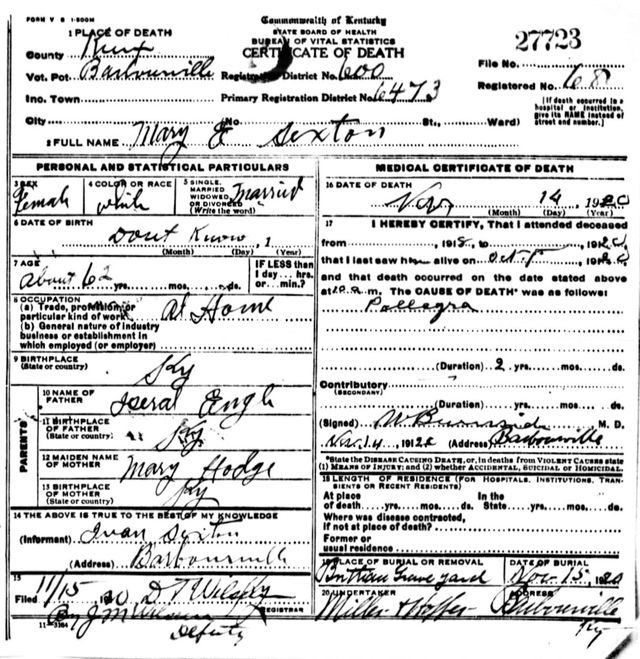 FORM V S 1-500M
Commonwealth of Kentucky
STATE BOARD OF HEALTH
BUREAU OF VITAL STATISTICS
CERTIFICATE OF DEATH
27723
1 PLACE OF DEATH
County Knox
Vot. Pct. Barbourville
Registration District No. 600
File No.
Inc. Town
Primary Registration District No. 6473
Registered No. 68
City (No. St., Ward)
[If death occurred in a hospital or institution, give its NAME instead of street and number.]
2 FULL NAME Mary E Sexton
PERSONAL AND STATISTICAL PARTICULARS
3 SEX Female
4 COLOR OR RACE white
5 SINGLE, MARRIED, WIDOWED OR DIVORCED (Write the word) Married
6 DATE OF BIRTH Dont Know, 1
(Month) (Day) (Year)
7 AGE about 62 yrs. mos. ds.
IF LESS than 1 day... hrs. or... min.?
8 OCCUPATION
(a) Trade, profession or particular kind of work At Home
(b) General nature of industry business or establishment in which employed (or employer)
9 BIRTHPLACE
(State or country) Ky
PARENTS
10 NAME OF FATHER
11 BIRTHPLACE OF FATHER
(State or country) Ky
12 MAIDEN NAME OF MOTHER Mary Hodge
13 BIRTHPLACE OF MOTHER
(State or country) Ky
14 THE ABOVE IS TRUE TO THE BEST OF MY KNOWLEDGE
(Informant) Ivan Sexton
(Address) Barbourville
15
Filed 11/15 1920
REGISTRAR
11-3184
By Deputy
MEDICAL CERTIFICATE OF DEATH
16 DATE OF DEATH Nov 14 1920
(Month) (Day) (Year)
17 I HEREBY CERTIFY, That I attended deceased
from , 191 to , 1920
that I last saw h alive on Oct , 1920
and that death occurred on the date stated above
at m. The CAUSE OF DEATH* was as follows:
Pellegra
(Duration) 2 yrs. mos. ds.
Contributory
(SECONDARY)
(Duration) yrs. mos. ds.
(Signed) M. D.
Nov. 14, 1920 (Address) Barbourville
*State the DISEASE CAUSING DEATH, or, in deaths from VIOLENT CAUSES state (1) MEANS OF INJURY; and (2) whether ACCIDENTAL, SUICIDAL OR HOMICIDAL.
18 LENGTH OF RESIDENCE (FOR HOSPITALS, INSTITUTIONS, TRANSIENTS OR RECENT RESIDENTS)
At place of death yrs. mos. ds. In the State yrs. mos. ds.
Where was disease contracted,
if not at place of death?
Former or
usual residence
19 PLACE OF BURIAL OR REMOVAL
Graveyard
DATE OF BURIAL
Nov 15 1920
20 UNDERTAKER
Miller
ADDRESS
Barbourville
Ky